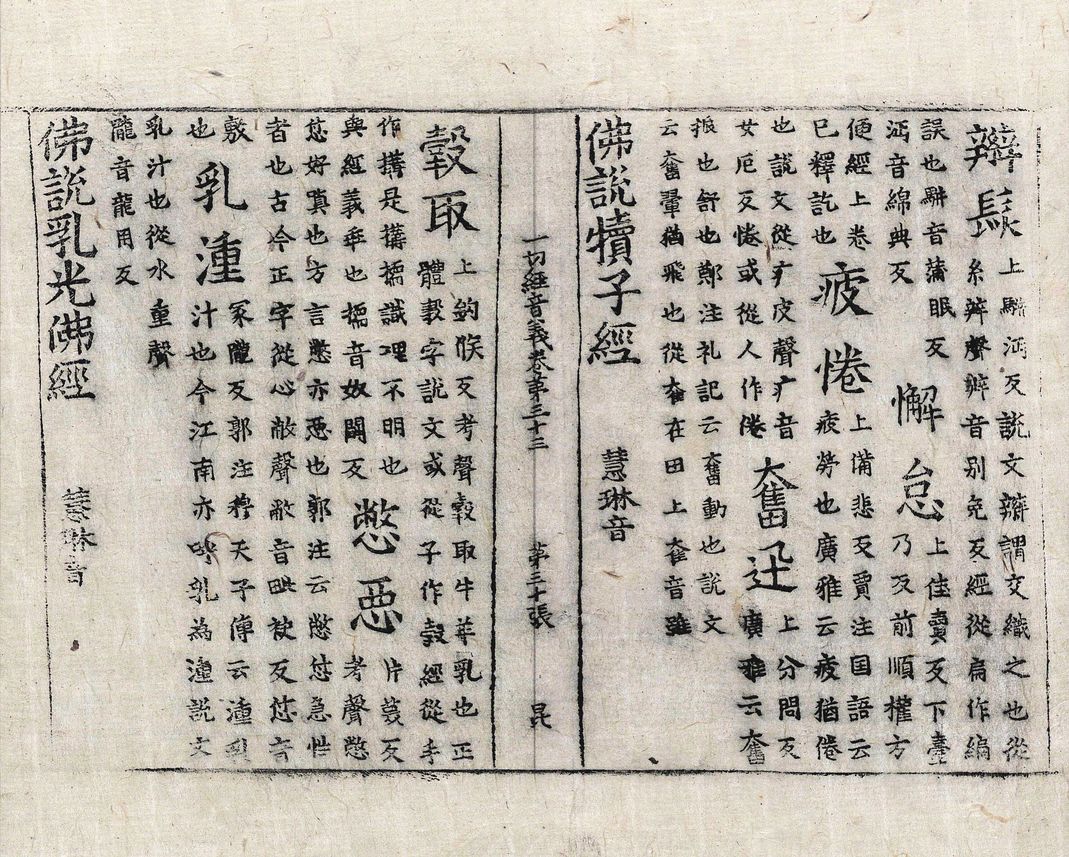 辮髮上駢沔反說文辮謂交織之也從
糸辡聲辡音別免反經從扁作編
誤也駢音蒲眠反
沔音綿典反
懈怠上佳賣反下臺
乃反前順權方
便經上卷
已釋訖也
疲惓上備悲反賈注国語云
疲勞也廣雅云疲猶倦
也說文從疒皮聲疒音
女厄反惓或從人作倦
奮迅上分問反
廣雅云奮
振也舒也鄭注礼記云奮動也說文
云奮翬猶飛也從奞在田上奞音雖
佛說犢子經 慧琳音
一切經音義卷第三十三 第三十張 昆
㝅取上鉤候反考聲㝅取牛羊乳也正
體㝅字說文或從子作㝅經從手
作搆是搆擩識理不明也
與經義乖也擩音奴鬪反
憋惡片蔑反
考聲憋
怤好嗔也方言憋亦惡也郭注云憋怤急性
者也古今正字從心敝聲敝音毗袂反怤音
敷
也
乳湩冢隴反郭注穆天子傳云湩乳
汁也今江南亦呼乳為湩說文
乳汁也從水重聲
隴音龍用反
佛說乳光佛經 慧琳音